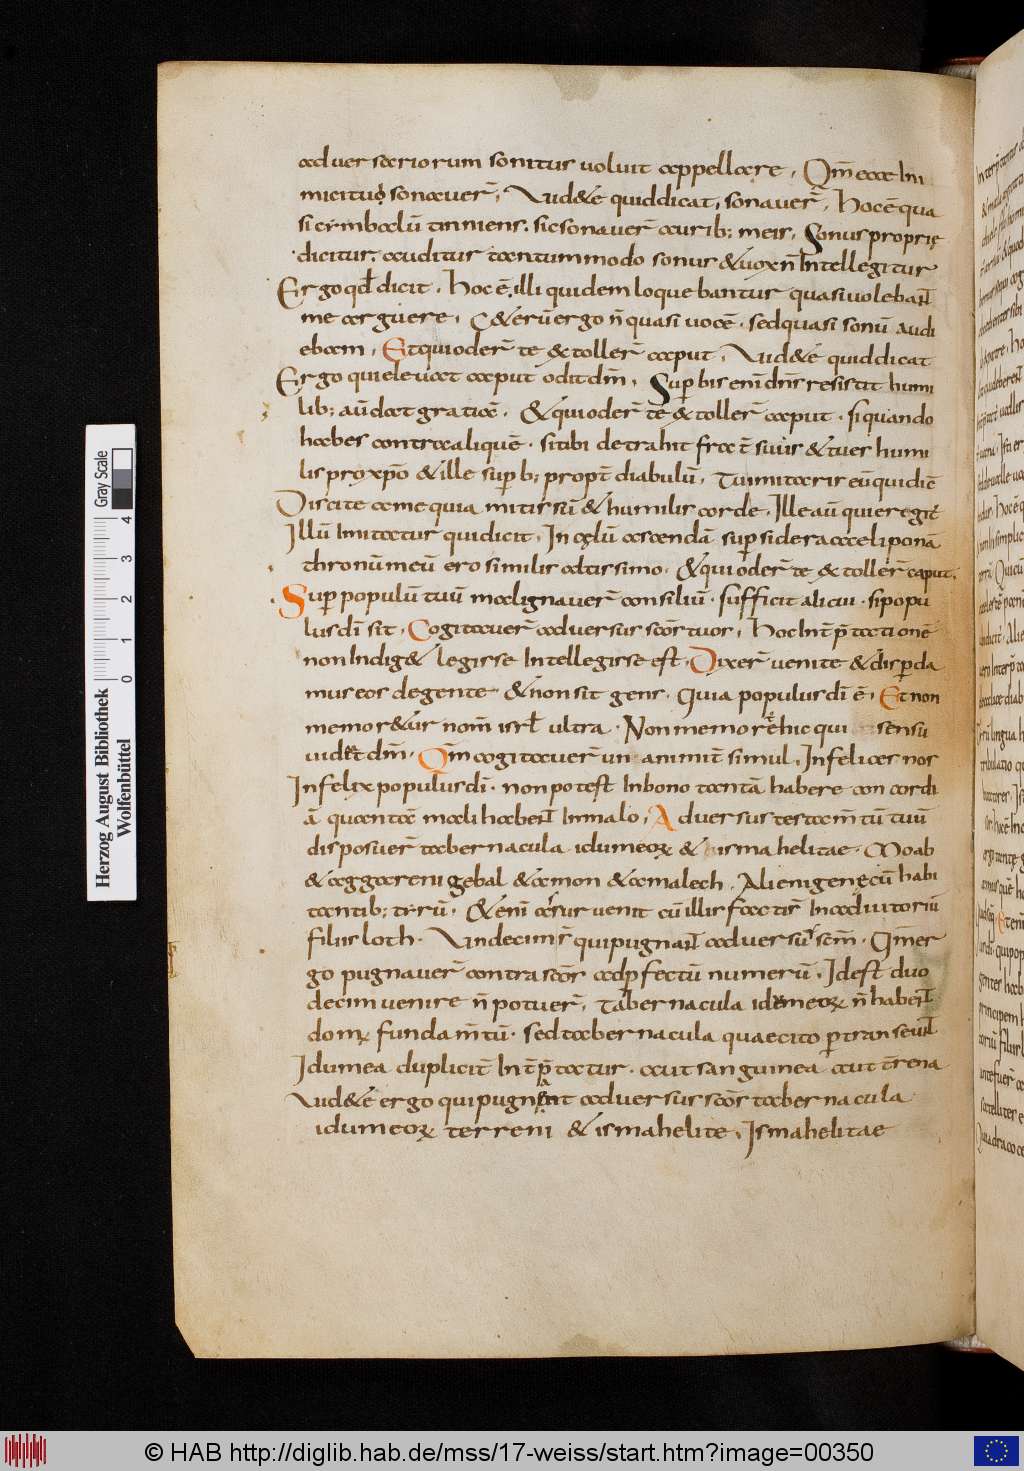 aduersariorum sonitus voluit appellare. Qm̄ ecce Ini
micitui sonauer̄. Vid&e quid dicat, sonauer̄. Hoc ē qua
si cymbalū tinniens. sic sonauer̄ aurib; meis. Sonus proprię
dicitur. auditur tantummodo sonus & uox n̄ Intellegitur
Ergo qđ dicit. Hoc ē. illi quidem loquebantur quasi uolebant
me arguere. & erū ergo n̄ quasi uocē. sed quasi sonū audi
ebam. Et qui oder̄ te & toller̄ caput. Vid&e quid dicat
Ergo qui eleuat caput odit dm̄. Sup bis enī dn̄s resistit humi
lib; aū dat gratiā. & qui oder̄ te & toller̄ caput. si quando
habes contra aliquē. si tibi detrahit frat̄ suus & tu es humi
lis pro xpo & ille sup b; propt̄ diabulū. Tu imitaris eū qui dic̄
Discite a me quia mitis sū & humilis corde. Ille aū qui eregit
Illū Imitatur qui dicit. In cęlū ascendā sup sidera caeli ponā
thronū meū ero similis altissimo. & qui oder̄ te & toller̄ caput.
Sup populū tuū malignauer̄ consiliū. sufficit alicui. si popu
lus dī sit. Cogitauer̄ aduersus scōs tuos. Hoc Int̄ p̄tationē
non Indig& legisse Intellegisse est. Dixer̄ uenite & disperda
mus eos de gente & non sit gens. Quia populus dī ē. Et non
memor&ur nom̄ isrl̄ ultra. Non memor& hic qui sensu
uidet dm̄. Qm̄ cogitauer̄ un animit̄ simul. Infelices nos
Infelyx populus dī. non potest In bono tantā habere concordi
ā quantā mali habent In malo. Aduersus te stam̄tū tuū
disposuer̄ tabernacula idumeoꝝ & ismahelitae. Moab
& aggareni gebal & amon & amalech. Alienigenę cū habi
tantib; tyrū. & enī assur uenit cū illis factī s̄ In adiutoriū
filiis loth. Vndecim s̄ qui pugnant aduersū scm̄. Qm̄ er
go pugnauer̄ contra scōs ad pfectū numerū. Id est duo
decim uenire n̄ potuer̄. Tabernacula idumeoꝝ n̄ habent
domꝝ fundam̄tū. sed tabernacula quae cito ptranseunt
Idumea duplicit̄ Int̄ p̄tatur. aut sanguinea aut t̄rena
Vid&e ergo qui pugnent aduersus scōs tabernacula
idumeoꝝ terreni & ismahelite. Ismahelitae
Herzog August Bibliothek
Wolfenbüttel
Gray Scale
0 1 2 3 4
© HAB http://diglib.hab.de/mss/17-weiss/start.htm?image=00350